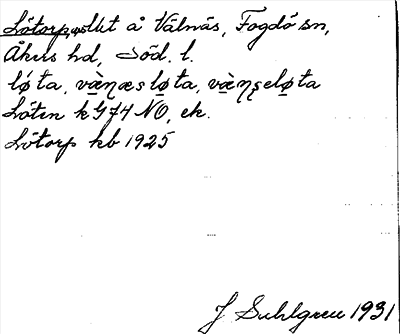 Lötorp, slut å Välnäs, Fogdö sn,
Åkers hd, Söd. l.
lǿta, vä̀ŋæsløta, vä̀ŋşeløta
Löten k G74 NO, ek.
Lötorp kb 1925
J Suhlgren 1931